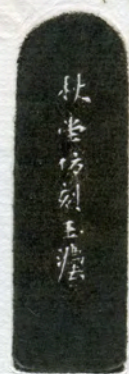 秋堂仿刻玉灋